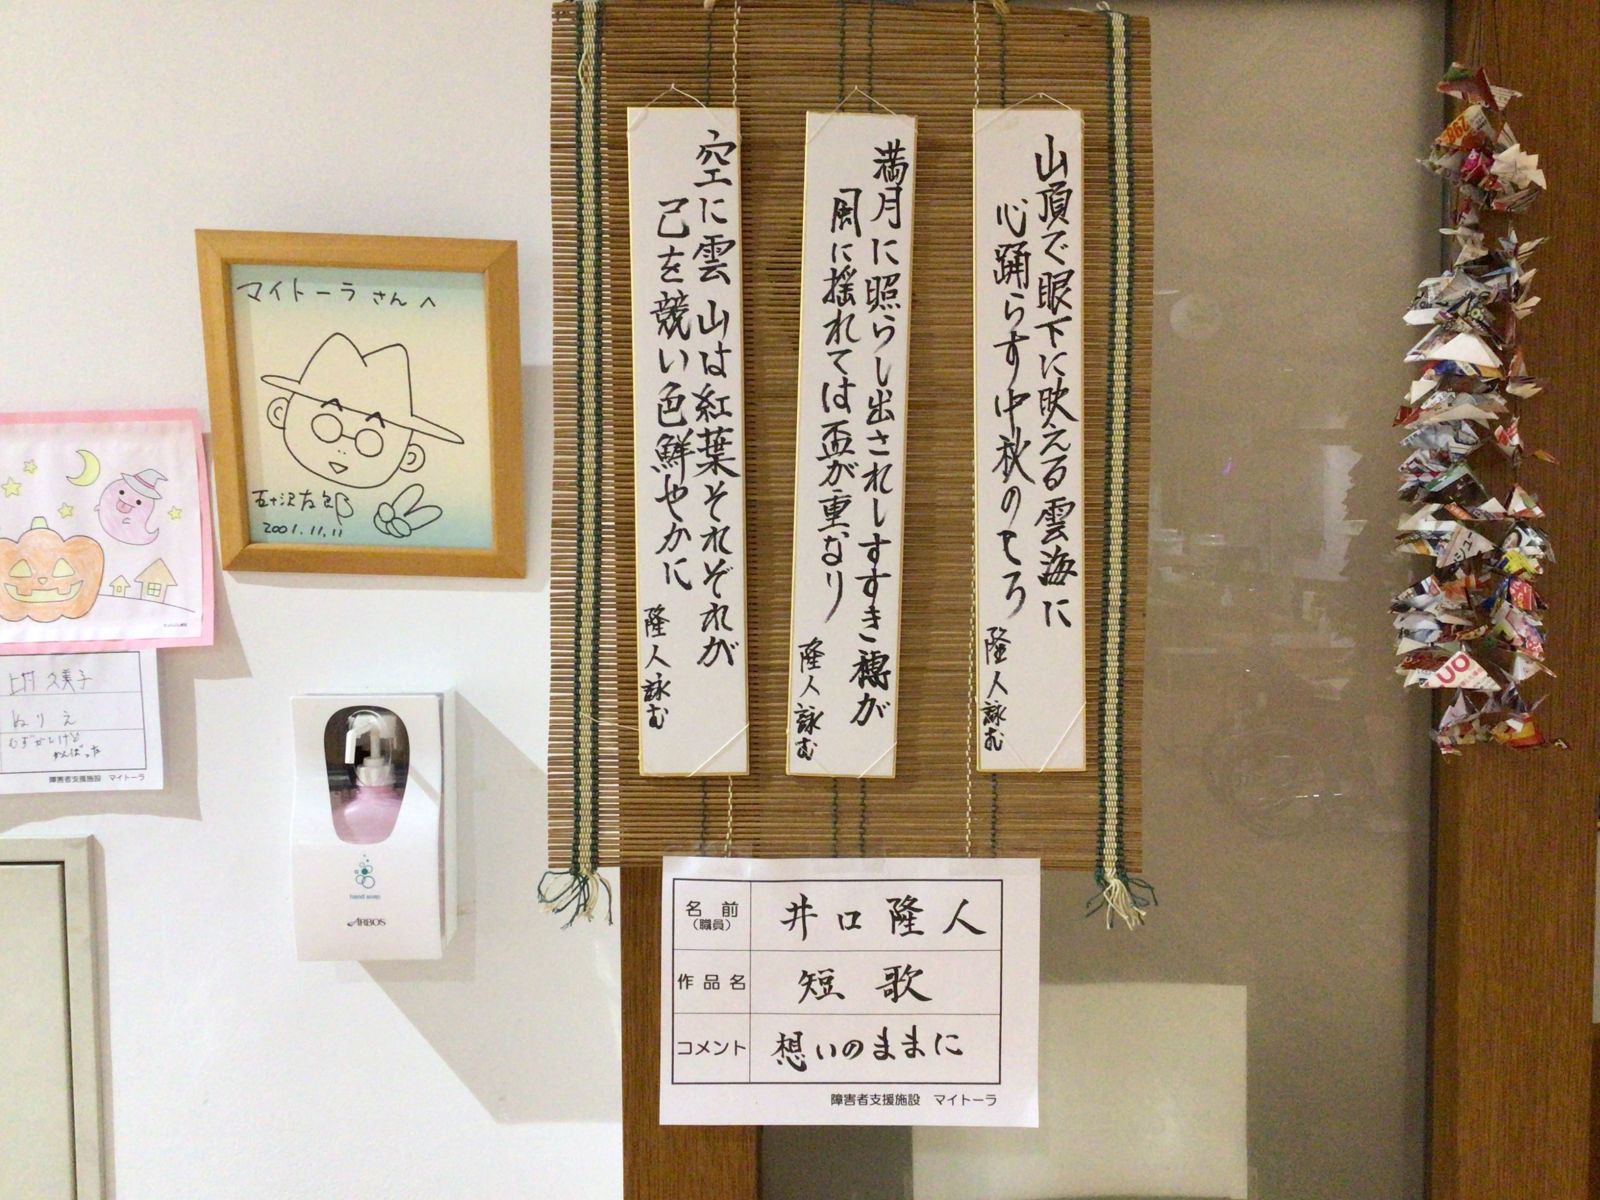 山頂で眼下に映える雲海に
心踊らす中秋のころ
隆人詠む
満月に照らし出されしすすき穂が
風に揺れては盃が重なり
隆人詠む
空に雲山は紅葉それぞれが
己を競い色鮮やかに
隆人詠む
マイトーラさんへ
2001.11.11
久美子
ぬりえ
むずかしいけど
がんばった
障害者支援施設 マイトーラ
hand soap
ARBOS
名前
(職員)
井口隆人
作品名
短歌
コメント
想いのままに
障害者支援施設 マイトーラ